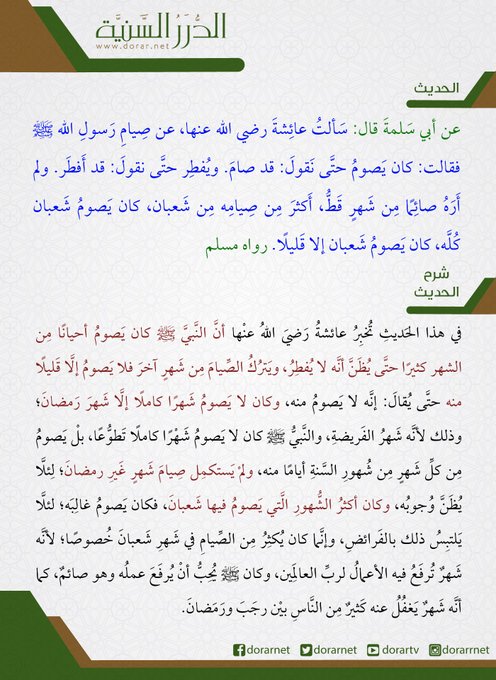 الدُّرَرُ السَّنِيَّة
www.dorar.net
الحديث
عن أبي سَلمةَ قال: سَألتُ عائِشةَ رضي الله عنها، عن صِيامِ رَسولِ الله ﷺ
فقالت: كان يَصومُ حتَّى نَقولَ: قد صامَ. ويُفطِر حتَّى نقولَ: قد أَفطَر. ولم
أرَهُ صائِمًا مِن شَهرٍ قَطُّ، أكثرَ مِن صِيامِه مِن شَعبان، كان يَصومُ شَعبان
كُلَّه، كان يَصومُ شَعبان إلا قَليلًا. رواه مسلم
شرح
الحديث
في هذا الحَديثِ تُخبِرُ عائشةُ رَضيَ اللهُ عنْها أنَّ النَّبيَّ ﷺ كان يَصومُ أحيانًا مِن
الشهر كثيرًا حتَّى يُظَنَّ أنَّه لا يُفطِرُ، ويَترُكُ الصِّيامَ مِن شَهرٍ آخرَ فلا يَصومُ إلَّا قَليلًا
منه حتَّى يُقالَ: إنَّه لا يَصومُ منه، وكان لا يَصومُ شَهرًا كاملًا إلَّا شَهرَ رَمضانَ؛
وذلك لأنَّه شَهرُ الفَريضةِ، والنَّبيُّ ﷺ كان لا يَصومُ شَهْرًا كاملًا تطوُّعًا، بلْ يَصومُ
مِن كلِّ شَهرٍ مِن شُهورِ السَّنةِ أيامًا منه، ولمْ يَستكمِل صِيامَ شَهرٍ غَيرِ رمضانَ؛ لِئلَّا
يُظَنَّ وُجوبُه، وكان أكثرُ الشُّهورِ الَّتي يَصومُ فيها شَعبانَ، فكان يَصومُ غالِبَه؛ لئلَّا
يَلتبِسُ ذلك بالفَرائضِ، وإنَّما كان يُكثِرُ مِن الصِّيامِ في شَهرِ شَعبانَ خُصوصًا؛ لأنَّه
شَهرٌ تُرفَعُ فيه الأعمالُ لربِّ العالَمِين، وكان ﷺ يُحِبُّ أنْ يُرفَعَ عملُه وهو صائمٌ، كما
أنَّه شَهرٌ يَغفُلُ عنه كَثيرٌ مِن النَّاسِ بيْن رجَبَ ورَمَضانَ.
dorarnet dorarnet dorartv dorarrnet